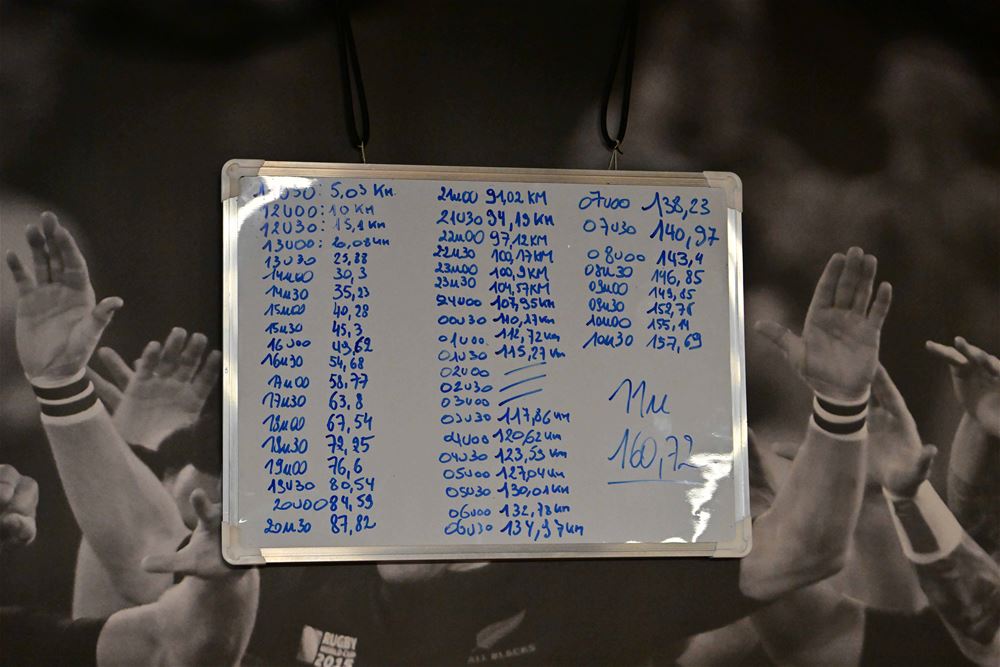 11U30: 5,03 Km
12U00: 10 Km
12U30: 15,1 Km
13U00: 20,08 Km
13U30 25,88
14U00 30,3
14U30 35,23
15U00 40,28
15U30 45,3
16U00 49,62
16U30 54,68
17U00 58,77
17U30 63,8
18U00 67,54
18U30 72,25
19U00 76,6
19U30 80,54
20U00 84,59
20U30 87,82
21U00 91,02 KM
21U30 94,19 Km
22U00 97,12 KM
22U30 100,17 KM
23U00 100,9 KM
23U30 104,57 KM
24U00 107,95 Km
00U30 110,27 Km
01U00 112,72 Km
01U30 115,27 Km
02U00
02U30
03U00
03U30 117,86 Km
04U00 120,62 Km
04U30 123,53 Km
05U00 127,04 Km
05U30 130,01 Km
06U00 132,78 Km
06U30 134,97 Km
07U00 138,23
07U30 140,97
08U00 143,4
08U30 146,85
09U00 149,85
09U30 152,76
10U00 155,14
10U30 157,69
11U
160,72
RUGBY
WORLD CUP
2015
ALL BLACKS